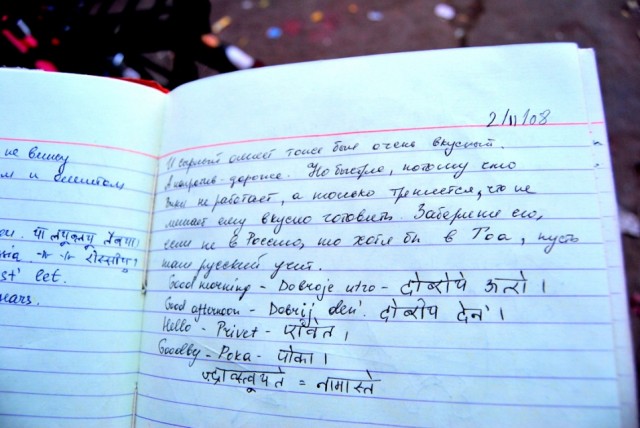 не вижу
м и омлетом
st' let.
ears.
2/11/08
И сырный омлет тоже был очень вкусный.
А напротив - дороже. Но быстро, потому что
не работает, а только треплется, что не
мешает ему вкусно готовить. Заберите его,
если не в Россию, то хотя бы в Гоа, пусть
там русский учит.
Good morning - Dobroje utro - दोब्रोये ऊत्रो ।
Good afternoon - Dobrij den'. दोब्रीय देन' ।
Hello - Privet - प्रीवेत ।
Goodby - Poka - पोका ।
ज़्द्रावस्त्वूयते = नामास्ते